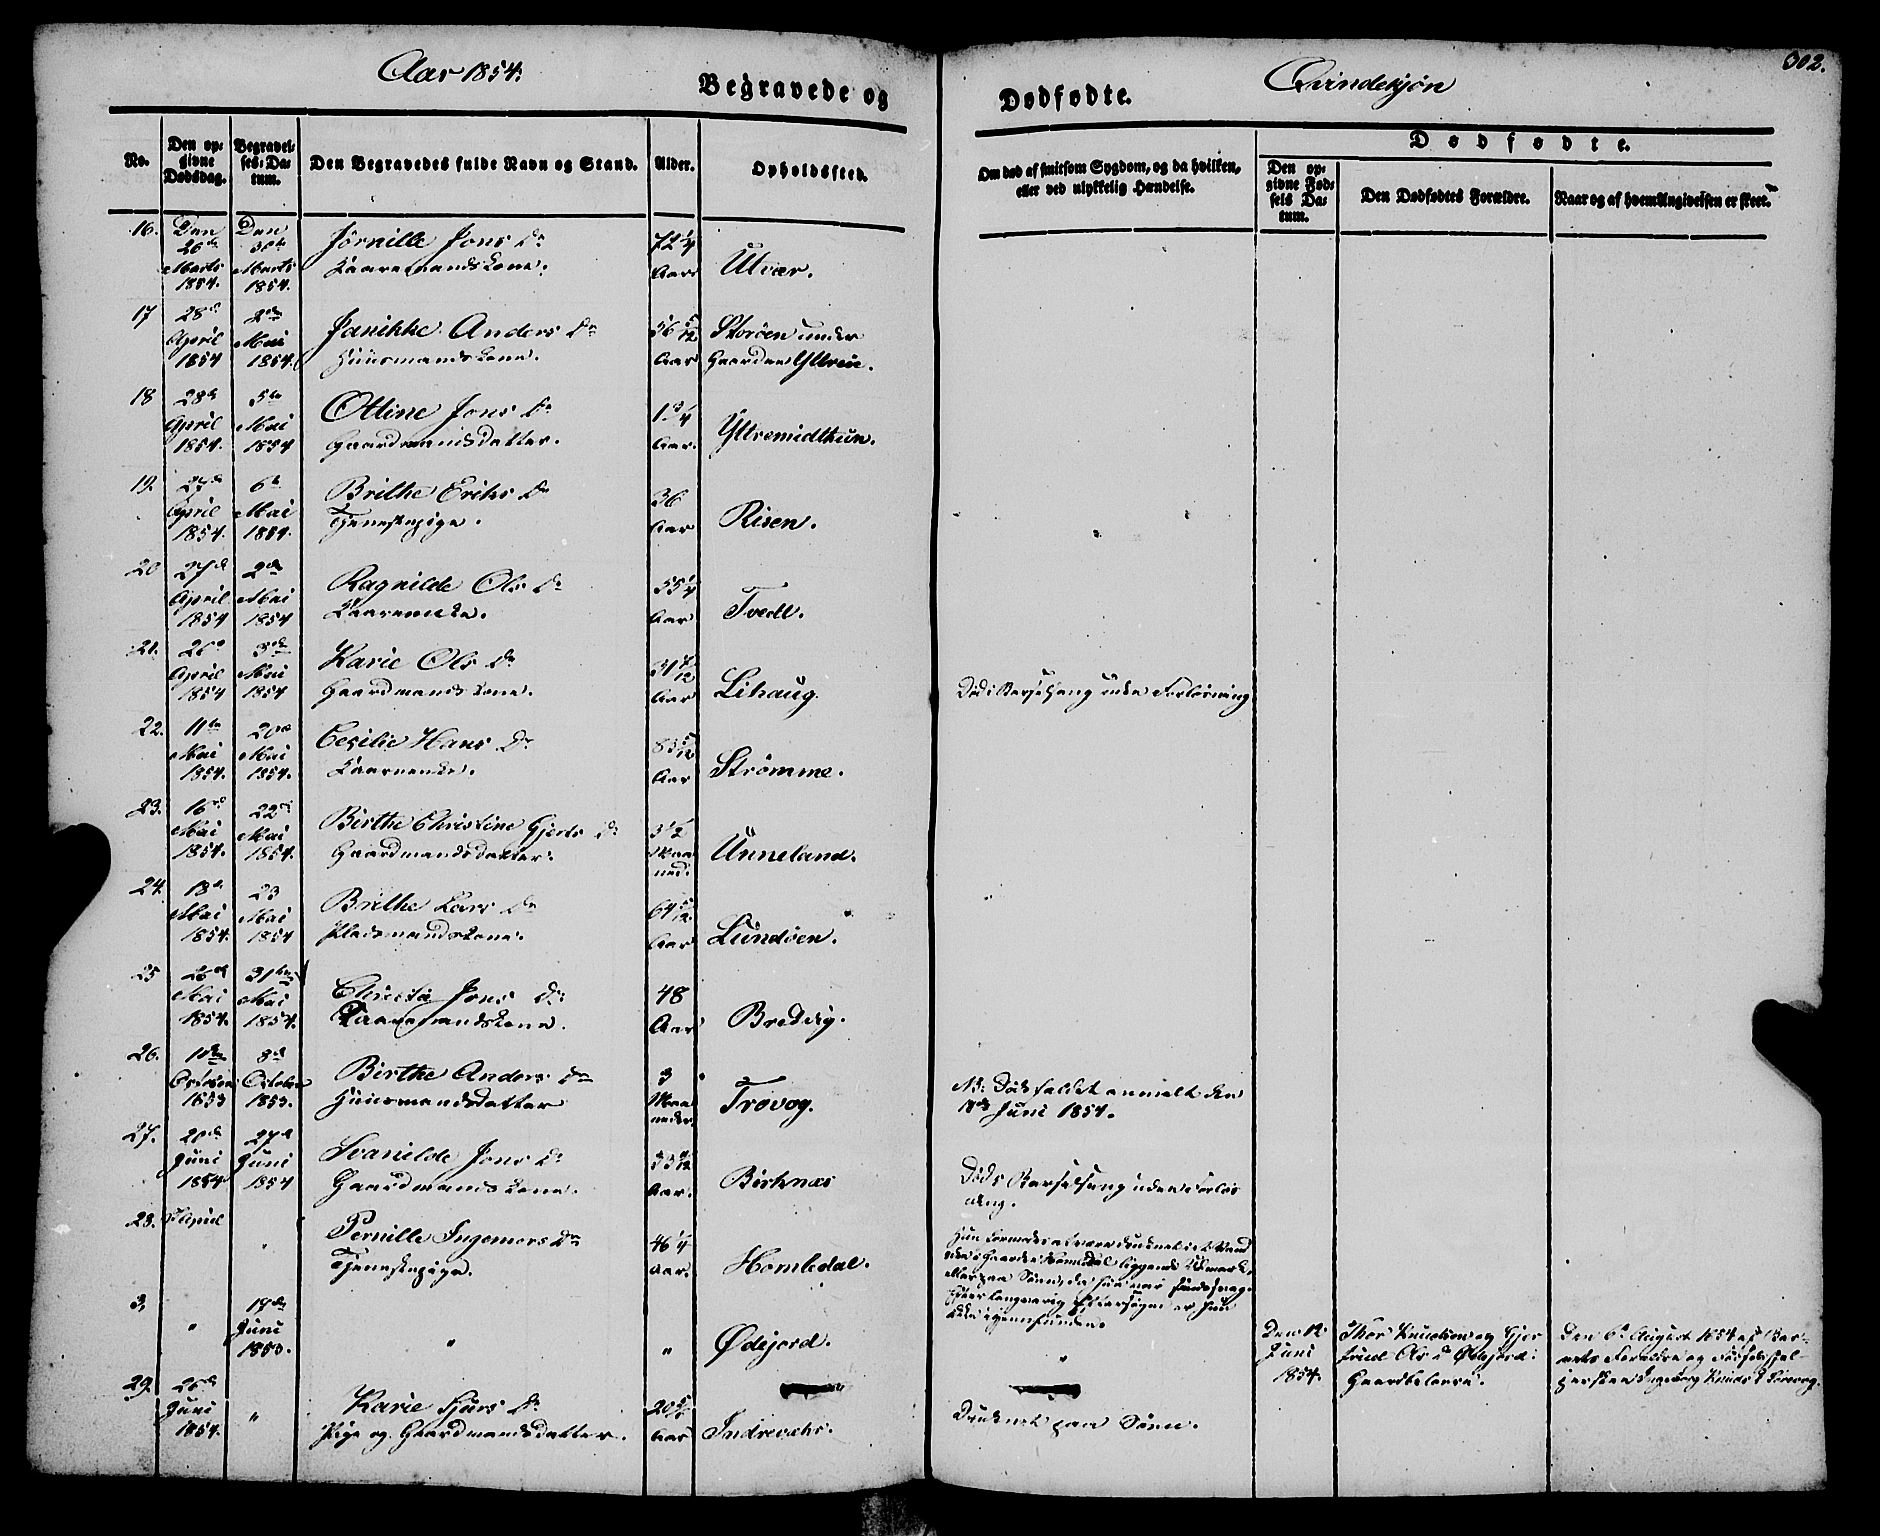 Aar 1854.
Begravede og
Dødfødte.
Qvindekjøn
302.
No.
Den op-
givne
Dødsdag.
Begravel-
ses-Da-
tum.
Den Begravedes fulde Navn og Stand.
Alder.
Opholdssted.
Om død af smitsom Sygdom, og da hvilken,
eller ved ulykkelig Hændelse.
Dødfødte.
Den op-
givne Fød-
sels Da-
tum.
Den Dødfødtes Forældre.
Naar og af hvem Angivelsen er skeet.
16.
Den
26de
Marts
1854.
Den
30te
Marts
1854.
Jørnille Jons Dr
Kaaremandskone.
72 1/4
Aar
Utvær.
17
28de
April
1854
2den
Mai
1854.
Janikke Anders Dr
Huusmandskone.
56 5/12
Aar
Storøen under
Gaarden Yttrøe.
18
28de
April
1854.
5te
Mai
1854
Otline Jons Dr
Gaardmandsdatter.
1 3/4
Aar.
Yttremidthun.
19.
27de
April
1854.
6te
Mai
1854.
Brithe Eriks Dr
Tjenestepige.
36
Aar
Risen.
20
27de
April
1854
2den
Mai
1854
Ragnilde Ols Dr
Kaareenke.
55 1/4
Aar
Tvedt.
21.
26de
April
1854
3die
Mai
1854
Karie Ols Dr
Gaardmandskone.
31 7/12
Aar
Lihaug.
Død i Barselseng uden Forløsning
22.
11te
Mai
1854.
20de
Mai
1854.
Cesilie Hans Dr
Kaareenke.
83 5/12
Aar
Strømme.
23.
16de
Mai
1854.
22de
Mai
1854.
Birthe Christine Gjerts Dr
Gaardmandsdatter.
3 1/2
Maa-
ned.
Unneland.
24.
18de
Mai
1854.
23
Mai
1854
Brithe Lars Dr
Pladsmandskone.
64 5/12
Aar
Lundøen.
25
26de
Mai
1854.
31te
Mai
1854.
Christi Jons Dr
Kaaremandskone.
48
Aar
Bredvig.
26.
1ste
October
1853
8de
October
1853.
Birthe Anders Dr
Huusmandsdatter
3
Maa-
neder.
Trovog.
NB. Dødsfaldet anmeldt den
18de Juni 1854.
27.
20de
Juni
1854
27de
Juni
1854
Svanilde Jons Dr
Gaardmandskone.
33 5/12
Aar.
Birknæs
Død i Barselseng uden Forløs-
ning.
28.
April
"
Pernille Ingemors Dr
Tjenestepige.
46 1/4
Aar.
Homledal.
Hun formodes at være druknet i et Vand
i Gaarden Homledal liggende Udmark
eller paa Søen, da hun var sindssvag.
Efter langvarig Eftersøgen er hun
ikke igjenfunden.
3,
"
18de
Juni
1853.
"
"
Ødejord.
"
Den 12
Juni
1854.
Thor Knudsen og Gjer-
trud Ols Dr Ødejord.
Gaardbeboere.
Den 6te August 1854 af Bar-
nets Forældre og Fødselshjel-
persken Ingeborg Knuds Dr Trovog.
29.
26de
Juni
1854.
"
Karie Sjurs Dr
Pige og Gaardmandsdatter.
20 5/12
Aar
Indrevahr.
Druknet paa Søen.